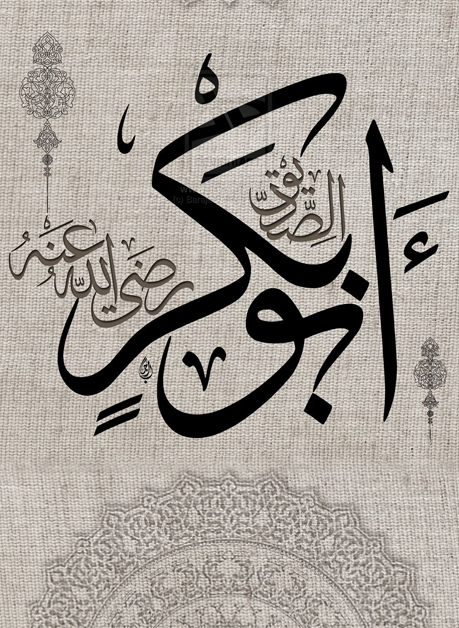 أَبُو بَكْرٍ
الصِّدِّيق
رضي الله عنه